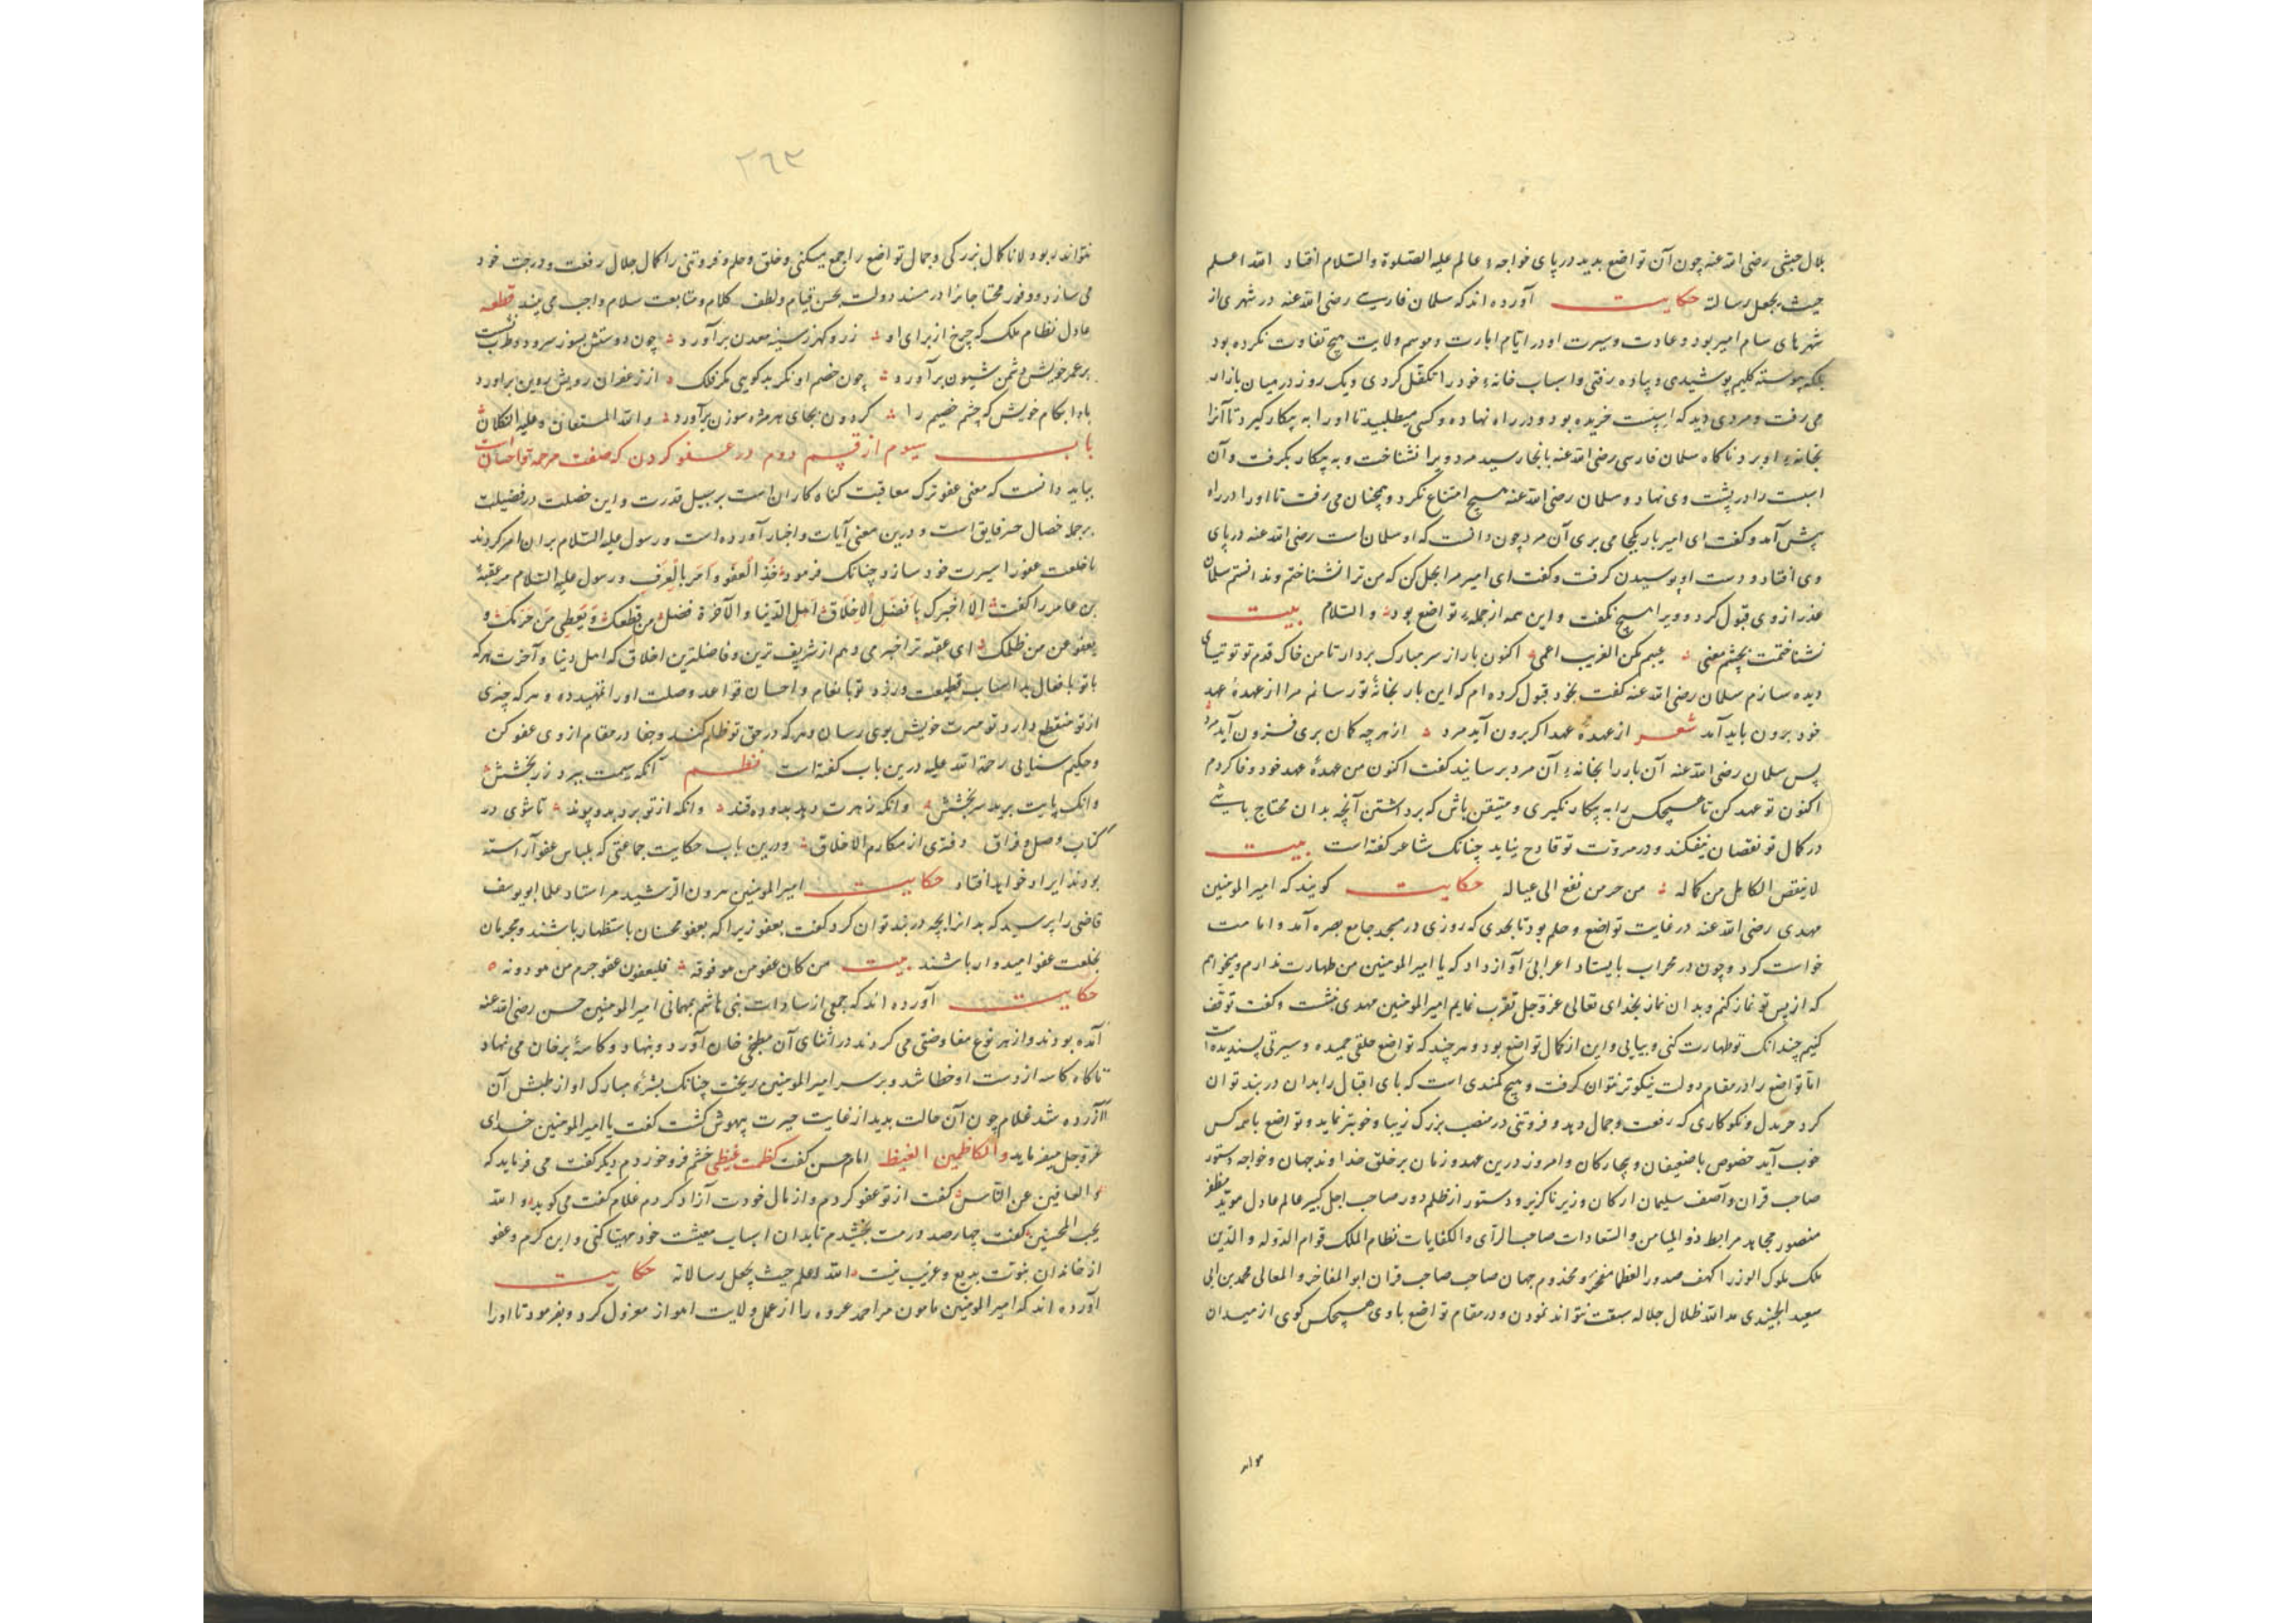 بلال حبشی رضی الله عنه چون آن تواضع بدید در پای خواجهٔ عالم علیه الصلوة والسلام افتاد الله اعلم
حیث یجعل رسالة حکایت آورده اند که سلمان فارسی رضی الله عنه در شهری از
شهرهای شام امیر بود و عادت و سیرت او در ایام امارت و موسم ولایت هیچ تفاوت نکرده بود
بلکه پیوسته کلیم پوشیدی و پیاده رفتی و اسباب خانهٔ خود را تکفل کردی و یک روز در میان بازار
می رفت و مردی دید که اسپست خریده بود و در راه نهاده و کسی میطلبید تا او را به بیکار گیرد تا آنرا
بخانهٔ او برد ناکاه سلمان فارسی رضی الله عنه بانجا رسید مرد ویرا نشناخت و به بیکار بگرفت و آن
اسبست را در پشت وی نهاد و سلمان رضی الله عنه هیچ امتناع نکرد و همچنان می رفت تا او را در راه
پیش آمد و کفت ای امیر بار بکجا می بری آن مرد چون دانست که او سلمان است رضی الله عنه در پای
وی افتاد و دست او بوسیدن کرفت و کفت ای امیر مرا بحل کن که من ترا نشناختم و ندانستم سلمان
عذر از وی قبول کرد و ویرا هیچ نکفت و این همه از جملهٔ تواضع بود والسلام بیت
نشناختمت بچشم معنی عیبم مکن الغریب اعمی اکنون بار از سر مبارک بردار تا من خاک قدم تو توتیای
دیده سازم سلمان رضی الله عنه کفت بخود قبول کرده ام که این بار بخانهٔ تو رسانم مرا از عهدهٔ عهد
خود برون باید آمد شعر از عهدهٔ عهد اکر برون آید مرد از هرچه کمان بری فزون آید مرد
پس سلمان رضی الله عنه آن بار را بخانهٔ آن مرد برسانید کفت اکنون من عهدهٔ عهد خود وفا کردم
اکنون تو عهد کن تا هیچکس را به بیکار نکیری و متیقن باش که برداشتن آنچه بدان محتاج باشی
در کمال تو نقصان نیفکند و در مروت تو قادح نیاید چنانک شاعر کفته است بیت
لا ینقص الکامل من کماله من جر من نفع الی عیاله حکایت کویند که امیر المومنین
مهدی رضی الله عنه در غایت تواضع و حلم بود تا بحدی که روزی در مسجد جامع بصره آمد و امامت
خواست کرد و چون در محراب بایستاد اعرابی آواز داد که یا امیر المومنین من طهارت ندارم و میخواهم
که از پس تو نماز کنم و بدان نماز بخدای تعالی عز وجل تقرب نمایم امیر المومنین مهدی بنشست و کفت توقف
کنیم چندانک تو طهارت کنی و بیایی و این از کمال تواضع بود و هر چند که تواضع خلقی حمیده و سیرتی پسندیده است
اما تواضع را در مقام دولت نیکوتر نتوان کرفت و هیچ کمندی است که پای اقبال را بدان در بند توان
کرد جز بدل و نکوکاری که رفعت و جمال دهد و فروتنی در منصب بزرک زیبا و خوبتر نماید و تواضع با همه کس
خوب آید خصوص با ضعیفان و بیچارکان و امروز درین عهد و زمان بر خلق خداوند جهان و خواجه دستور
صاحب قران و آصف سلیمان ارکان وزیر ناکزیر و دستور از ظلم دور صاحب اجل کبیر عالم عادل موید مظفر
منصور مجاهد مرابط ذو المیامن والسعادات صاحب الرأی والکفایات نظام الملک قوام الدوله والدین
ملک ملوک الوزرا کهف صدور العظما مفخر و مخدوم جهان صاحب صاحب قران ابو المفاخر والمعالی محمد بن ابی
سعید الجنیدی مد الله ظلال جلاله سبقت نتواند نمودن و در مقام تواضع با وی هیچکس کوی از میدان
٢٦٣
نتواند ربود لانا کمال بزرکی و جمال تواضع را جمع میکنی و خلق و حلم و فروتنی را کمال جلال رفعت و درجت خود
می سازد و وفور محتاجانرا در مسند دولت بحسن قیام و لطف کلام و متابعت سلام واجب می بیند قطعه
عادل نظام ملک که چرخ از برای او زر و کهر ز سینه معدن برآورد چون دوستش بسوز سرود و طرب نشست
بر عمر خویش دشمن شیون برآورد چون خصم او نکرید کویی مکر فلک از زعفران رویش روین برآورد
بادا بکام خویش که چشم خصیم را کردون بجای هر مژه سوزن برآورد والله المستعان وعلیه التکلان
باب سیوم از قسم دوم در عفو کردن که صفت مرحمه تواحسان است
بباید دانست که معنی عفو ترک معاقبت کناه کاران است بر سبیل قدرت و این خصلت در فضیلت
بر جمله خصال خیر فایق است و درین معنی آیات و اخبار آورده است و رسول علیه السلام بران امر کردند
تا خلعت عفو را سیرت خود سازد چنانک فرمود خذ العفو وأمر بالعرف و رسول علیه السلام مر عقبهٔ
بن عامر را کفت الا اخبرک بافضل الاخلاق اهل الدنیا والآخرة فصل من قطعک و یعطی من حرمک و
یعفو عن من ظلمک ای عقبه ترا خبر می دهم از شریف ترین و فاضلترین اخلاق که اهل دنیا و آخرت هر که
با تو بافعال بد اسباب قطیعت ورزد تو بانعام و احسان قواعد وصلت او را تمهید ده و هر که چیزی
از تو منقطع دارد تو مبرت خویش بوی رسان و هر که در حق تو ظلم کند و جفا در مقام از وی عفو کن
و حکیم سنایی رحمة الله علیه درین باب کفته است نظم آنکه سیمت ببرد زر بخشش
وانک پایت برید سر بخشش وانکه زهرت دهد بدو ده قند وانکه از تو برد بدو پیوند تا شوی در
کتاب وصل و فراق دفتری از مکارم الاخلاق و درین باب حکایت جماعتی که بلباس عفو آراسته
بودند ایراد خواهد افتاد حکایت امیر المومنین هرون الرشید مر استاد علما ابو یوسف
قاضی را پرسید که بد از بچه در بند توان کرد کفت بعفو زیرا که بعفو محسنان باستظهار باشند و مجرمان
بخلعت عفو امیدوار باشند بیت من کان عفو من هو فوقه فلیعفون عفو جرم من هو دونه
حکایت آورده اند که جمعی از سادات بنی هاشم بمهمانی امیر المومنین حسن رضی الله عنه
آمده بودند و از هر نوع مفاوضتی می کردند در اثنای آن مطبخی خان آورد و بنهاد و کاسهٔ بر خان می نهاد
ناکاه کاسه از دست او خطا شد و بر سر امیر المومنین ریخت چنانک بشرهٔ مبارک او از طپش آن
آزرده شد غلام چون آن حالت بدید از غایت حیرت بیهوش کشت کفت یا امیر المومنین خدای
عز وجل میفرماید والکاظمین الغیظ امام حسن کفت کظمت غیظی خشم فرو خوردم دیکر کفت می فرماید که
والعافین عن الناس کفت از تو عفو کردم و از مال خودت آزاد کردم غلام کفت می کوید والله
یحب المحسنین کفت چهارصد درمت بخشیدم تا بدان اسباب معیشت خود مهیا کنی و این کرم و عفو
از خاندان نبوت بدیع و غریب نیست الله اعلم حیث یجعل رسالاته حکایت
آورده اند که امیر المومنین مامون مر احمد عروه را از عمل ولایت اهواز معزول کرد و بفرمود تا او را